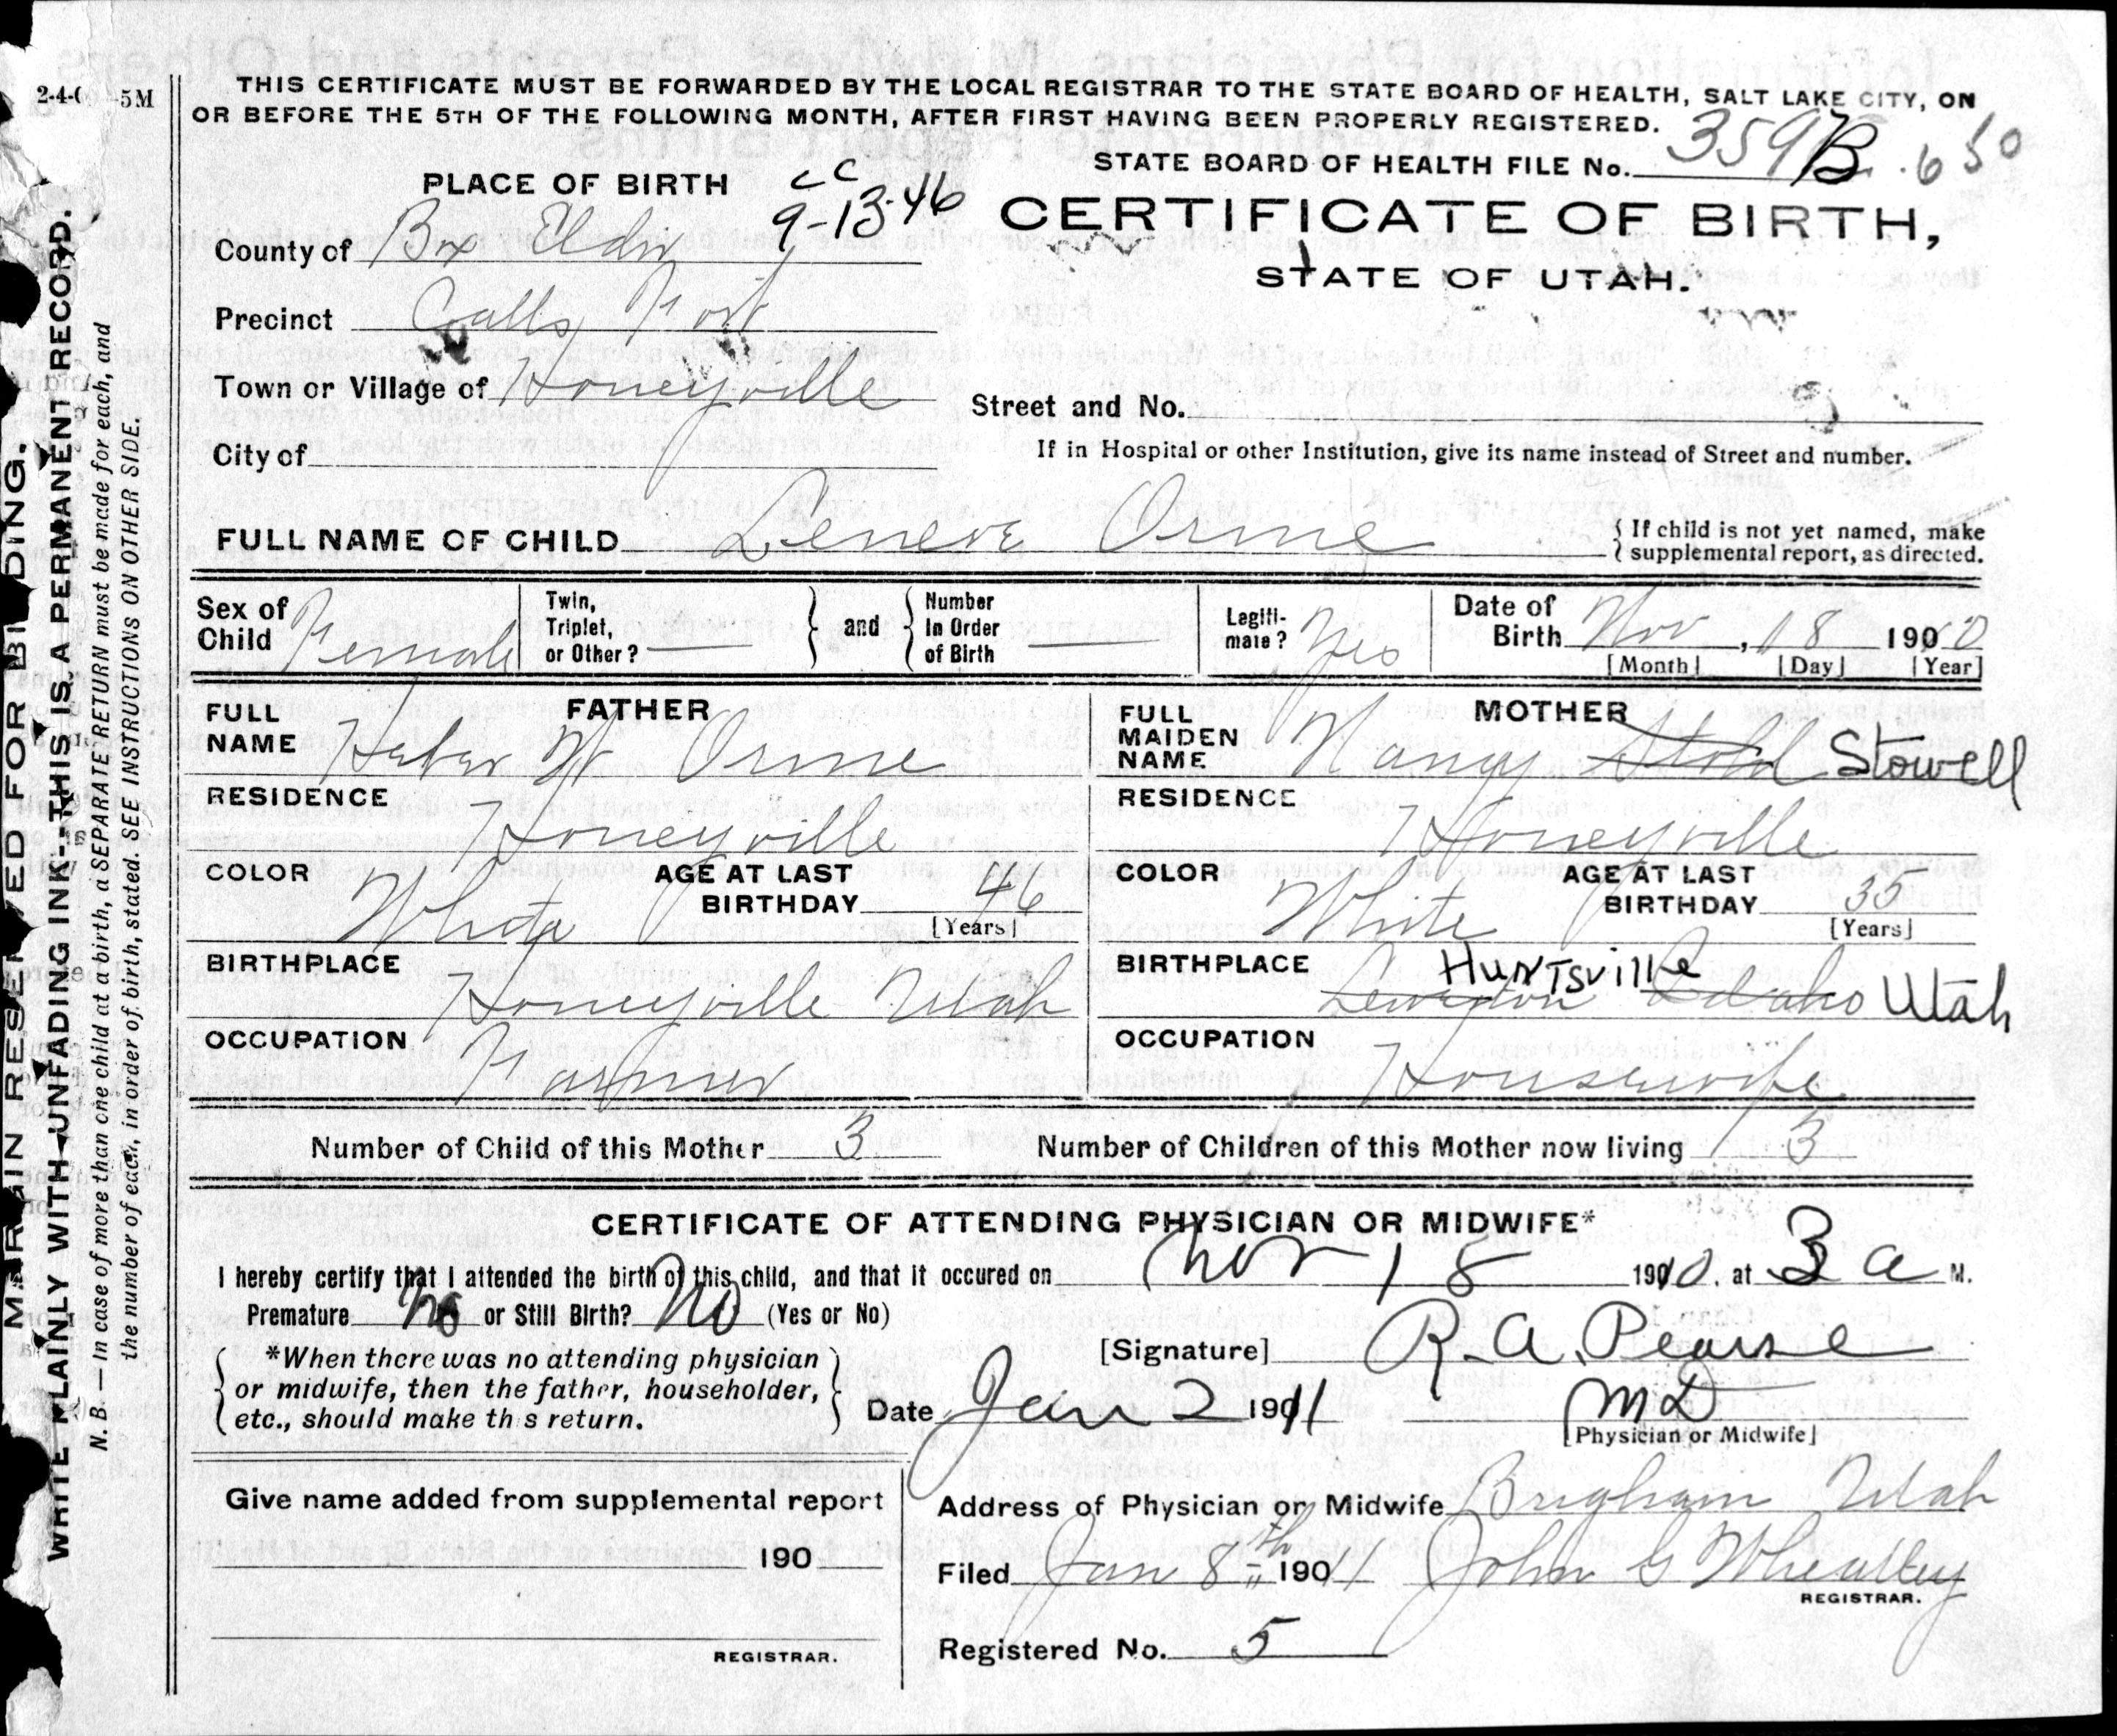 2-4-0 5M
THIS CERTIFICATE MUST BE FORWARDED BY THE LOCAL REGISTRAR TO THE STATE BOARD OF HEALTH, SALT LAKE CITY, ON
OR BEFORE THE 5TH OF THE FOLLOWING MONTH, AFTER FIRST HAVING BEEN PROPERLY REGISTERED.
STATE BOARD OF HEALTH FILE No. 359 B. 650
PLACE OF BIRTH
CC
9-13-46
CERTIFICATE OF BIRTH,
STATE OF UTAH.
County of Box Elder
Precinct Calls Fort
Town or Village of Honeyville
Street and No.
City of
If in Hospital or other Institution, give its name instead of Street and number.
FULL NAME OF CHILD Leneve Orme
{ If child is not yet named, make
{ supplemental report, as directed.
Sex of Child Female
Twin, Triplet, or Other? —
and
Number In Order of Birth —
Legiti-mate? Yes
Date of Birth Nov, 18 1910
[Month] [Day] [Year]
FATHER
FULL NAME Heber W Orme
RESIDENCE
Honeyville
COLOR White
AGE AT LAST BIRTHDAY 46
[Years]
BIRTHPLACE
Honeyville Utah
OCCUPATION
Farmer
MOTHER
FULL MAIDEN NAME Nancy Stowell
RESIDENCE
Honeyville
COLOR White
AGE AT LAST BIRTHDAY 35
[Years]
BIRTHPLACE Huntsville
Lewiston Idaho Utah
OCCUPATION
Housewife
Number of Child of this Mother 3
Number of Children of this Mother now living 3
CERTIFICATE OF ATTENDING PHYSICIAN OR MIDWIFE*
I hereby certify that I attended the birth of this child, and that it occured on Nov 18 1910. at 3 a M.
Premature No or Still Birth? No (Yes or No)
*When there was no attending physician
or midwife, then the father, householder,
etc., should make this return.
[Signature] R. A. Pearse
Date Jan 2 1911
MD
[Physician or Midwife]
Give name added from supplemental report
190
REGISTRAR.
Address of Physician or Midwife Brigham Utah
Filed Jan 8th 1911 John G Wheatley
REGISTRAR.
Registered No. 5
MARGIN RESERVED FOR BINDING.
WRITE PLAINLY WITH UNFADING INK--THIS IS A PERMANENT RECORD.
N. B. — In case of more than one child at a birth, a SEPARATE RETURN must be made for each, and
the number of each, in order of birth, stated. SEE INSTRUCTIONS ON OTHER SIDE.